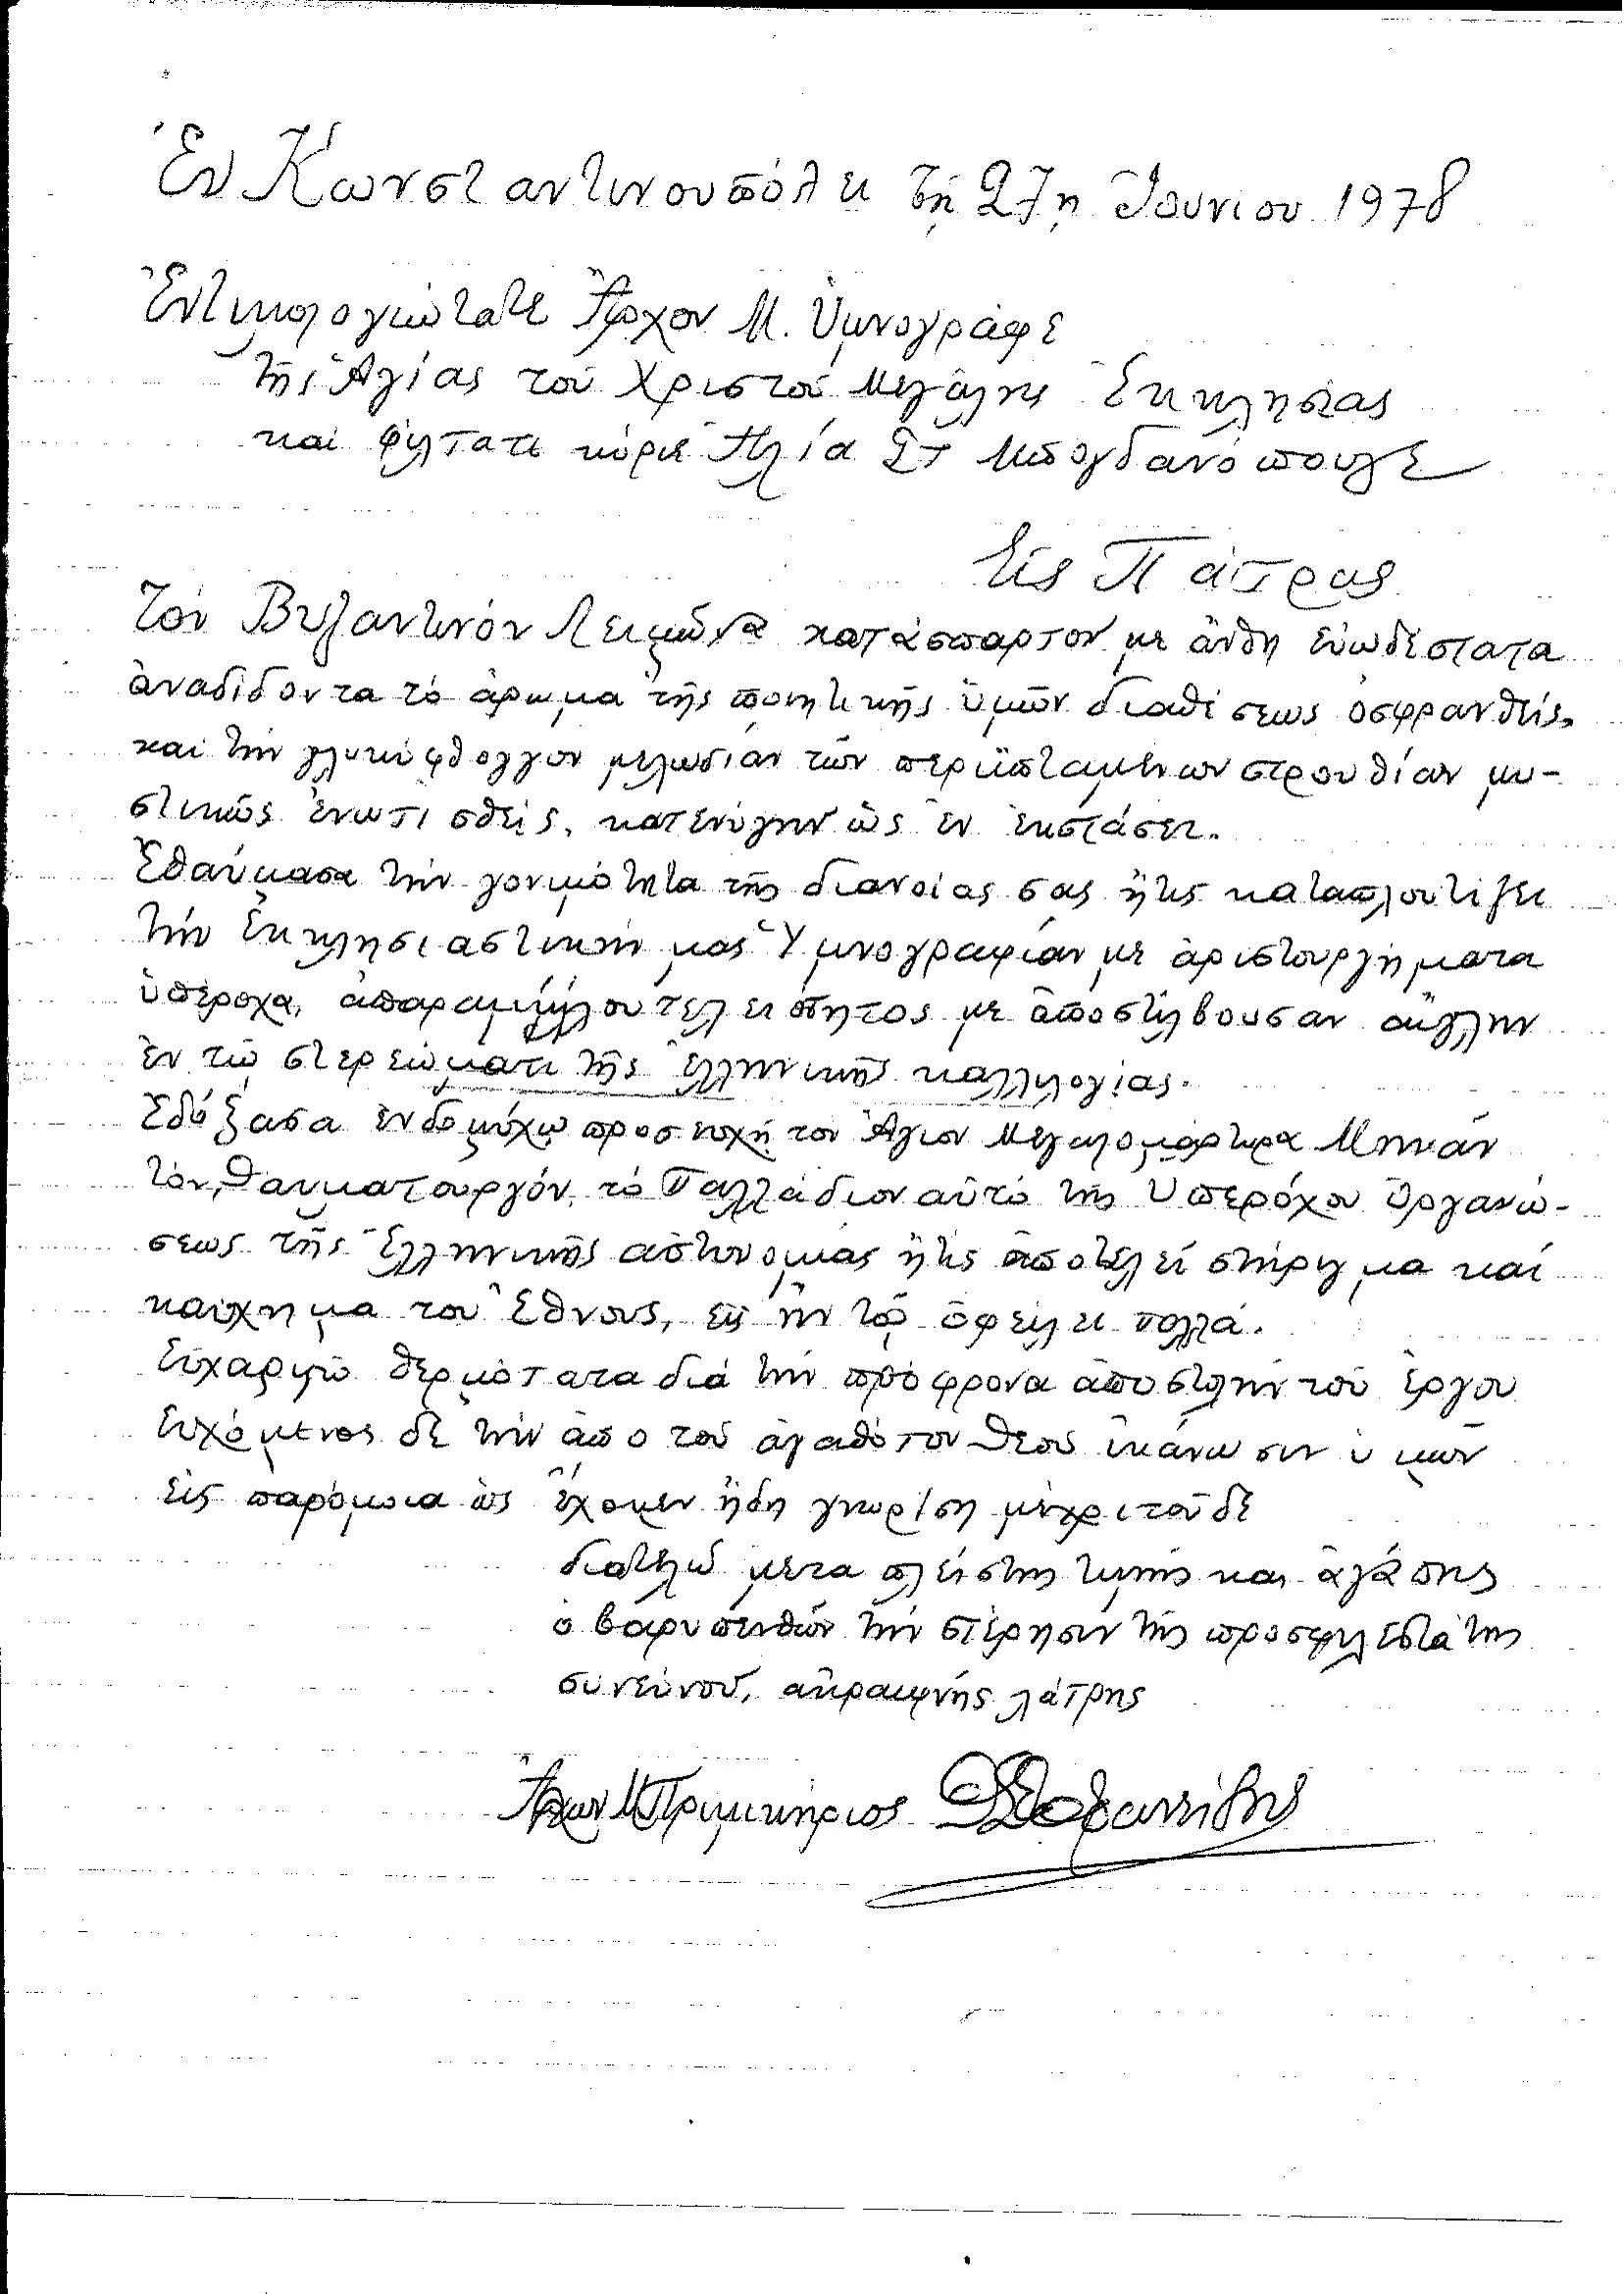 Ἐν Κωνσταντινουπόλει τῇ 27ῃ Ἰουνίου 1978
Ἐντιμολογιώτατε Ἄρχον Μ. Ὑμνογράφε
τῆς Ἁγίας τοῦ Χριστοῦ Μεγάλης Ἐκκλησίας
καί φίλτατε κύριε Ἠλία Στ Μπογδανόπουλε
Εἰς Πάτρας
Τόν Βυζαντινόν Λειμῶνα κατάσπαρτον με ἄνθη εὐωδέστατα
ἀναδίδοντα τό ἄρωμα τῆς ποιητικῆς ὑμῶν διαθέσεως ὀσφρανθείς,
καί τήν γλυκύφθογγον μελωδίαν τῶν περιϊπταμένων στρουθίων μυ-
στικῶς ἐνωτισθείς, κατενύγην ὡς ἐν ἐκστάσει.
Ἐθαύμασα τήν γονιμότητα τῆς διανοίας σας ἥτις καταπλουτίζει
τήν Ἐκκλησιαστικήν μας Ὑμνογραφίαν με ἀριστουργήματα
ὑπέροχα, ἀπαραμίλλου τελειότητος με ἀποστίλβουσαν αἴγλην
ἐν τῷ στερεώματι τῆς ἑλληνικῆς καλλιλογίας.
Ἐδόξασα ἐνδομύχῳ προσευχῇ τον Ἅγιον Μεγαλομάρτυρα Μηνάν
τόν θαυματουργόν, τό Παλλάδιον αὐτό τῆς Ὑπερόχου Ὀργανώ-
σεως τῆς Ἑλληνικῆς αστυνομίας ἥτις ἀποτελεί στήριγμα καί
καύχημα του Ἔθνους, εἰς ἥν τό ὀφείλει πολλά.
Εὐχαριστῶ θερμότατα διά τήν πρόφρονα ἀποστολήν τοῦ ἔργου
Εὐχόμενος δέ τήν ἀπο τοῦ ἀγαθότου Θεοῦ ἱκάνωσιν ὑμῶν
εἰς παρόμοια ὡς ἔχομεν ἤδη γνωρίση μέχρι τοῦδε
διατελῶ μετα πλείστης τιμής και ἀγάπης
ὁ βαρυπενθῶν τήν στέρησιν τῆς προσφιλεστάτης
συνεύνου, ακραιφνής λάτρης
Ἄρχων Μ Πριμικήριος